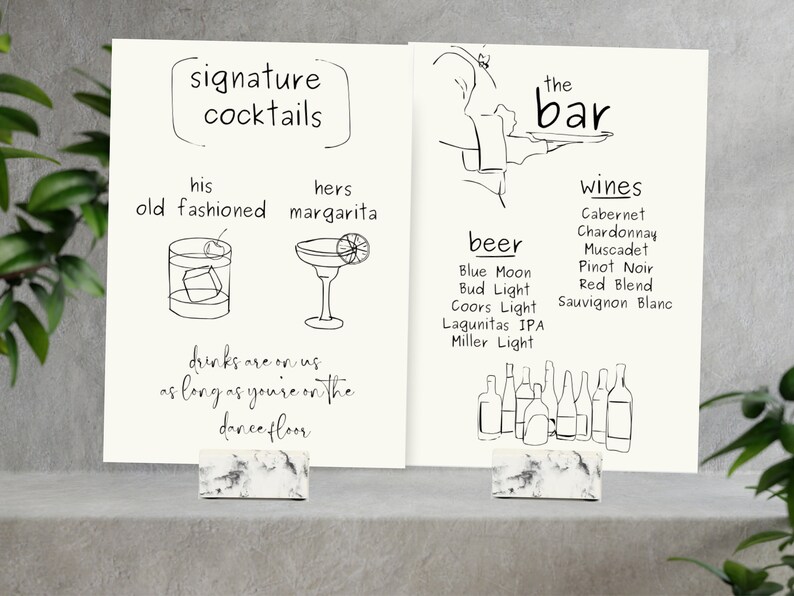 signature
cocktails
his
old fashioned
hers
margarita
drinks are on us
as long as you're on the
dance floor
the
bar
wines
Cabernet
Chardonnay
Muscadet
Pinot Noir
Red Blend
Sauvignon Blanc
beer
Blue Moon
Bud Light
Coors Light
Lagunitas IPA
Miller Light